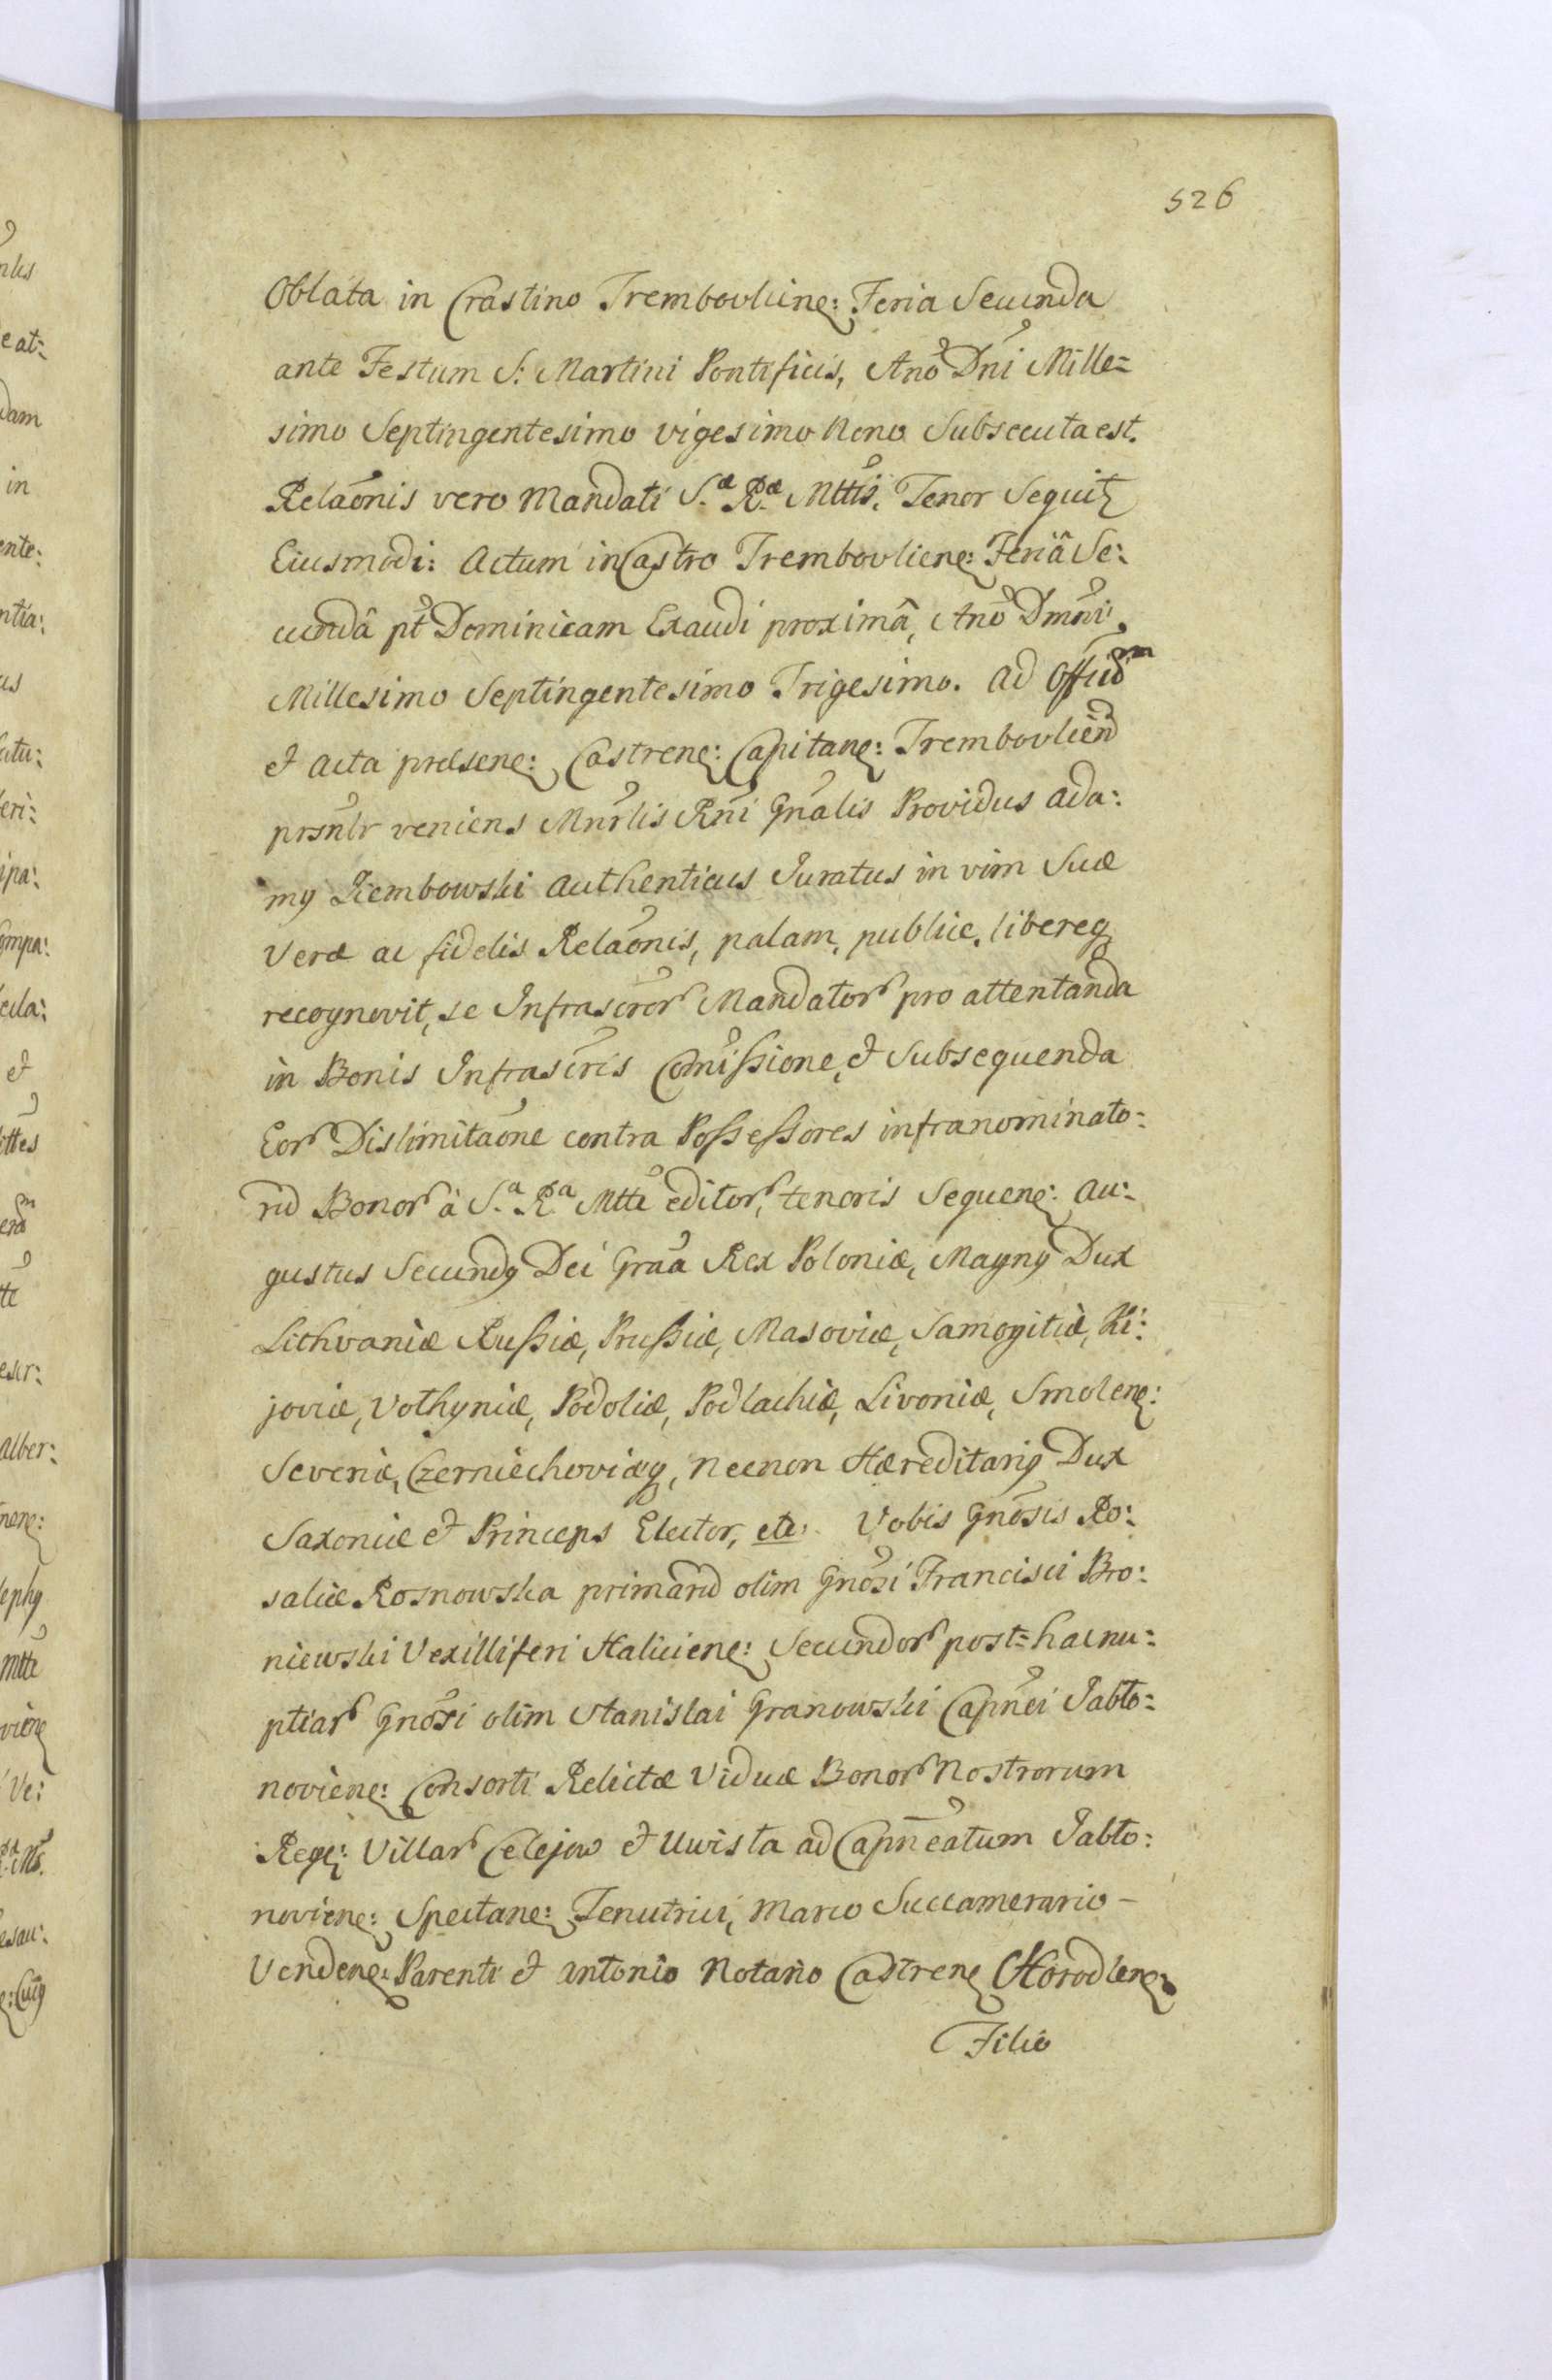 526
Oblata in Crastino Trembovliens: Feria Secunda
ante Festum S: Martini Pontificis, Anō Dnī Mille=
simo Septingentesimo vigesimo Nono Subsecuta est.
Relaōnis vero Mandati S.æ R.æ Mttis, Tenor Sequitꝫ
Eiusmodi: Actum in Castro Trembovliens: Feriâ Se:
cundâ pt Dominicam Exaudi proximâ, Anō Dmni
Millesimo Septingentesimo Trigesimo. Ad Offiium
et Acta præsens: Castrens: Capitans: Trembovlien
prsnlr veniens Mnrlis Rni Gnalis Providus Ada:
mꝯ Rembowski Authenticus Juratus in vim Suæ
Veræ ac fidelis Relaōnis, palam, publice, libereqꝫ
recognovit, se Infrascrorꝝ Mandatorꝝ pro attentanda
in Bonis Infrascris Comissione, et Subsequenda
Eorꝝ Dislimitaōne contra Possessores infranominato=
rū Bonorꝝ à S.a R.a Mtte editorꝝ, tenoris Sequens: Au:
gustus Secundꝯ Dei Graā Rex Poloniæ, Magnꝯ Dux
Lithvaniæ Russiæ, Prussiæ, Masoviæ, Samogitiæ, Ki:
joviæ, Vothyniæ, Podoliæ, Podlachiæ, Livoniæ, Smolens:
Severiæ, Czerniechoviæqꝫ, Necnon Hæreditariꝯ Dux
Saxoniæ et Princeps Elector, etc. Vobis Gnosis Ro:
saliæ Rosnowska primarū olim Gnosi Francisci Bro:
niewski Vexilliferi Haliciens: Secundorꝝ post=hac nu=
ptiarꝝ Gnosi olim Stanislai Granowski Capnei Jabło=
noviens: Consorti Relictæ Viduæ Bonorꝝ Nostrorum
Regꝫ: Villarꝝ Celejow et Uwisła ad Capneatum Jabło:
noviens: Spectans: Tenutrici, Marco Succamerario –
Vendens: Parenti et Antonio Notario Castrens Horodlens:
Filio